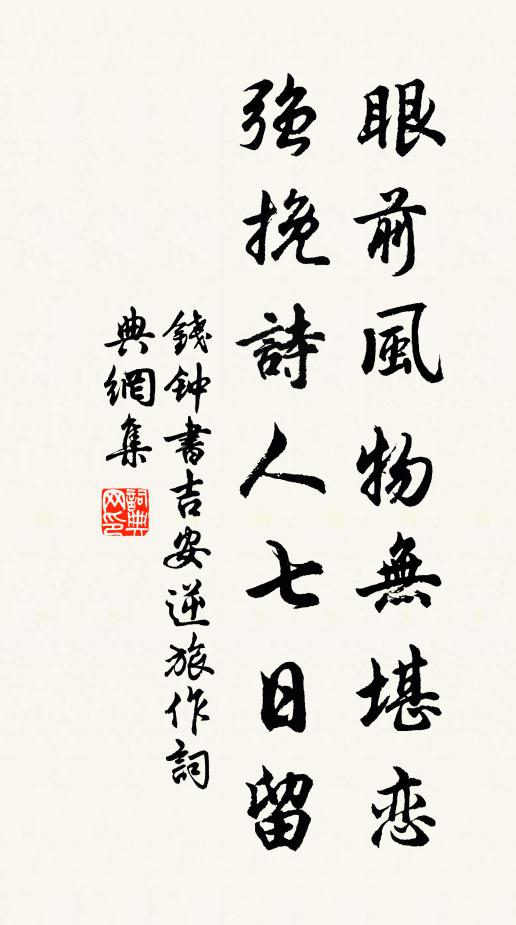 眼前風物無堪恋
強挽詩人七日留
錢钟書吉安逆旅作詞
典網集
詞典网印